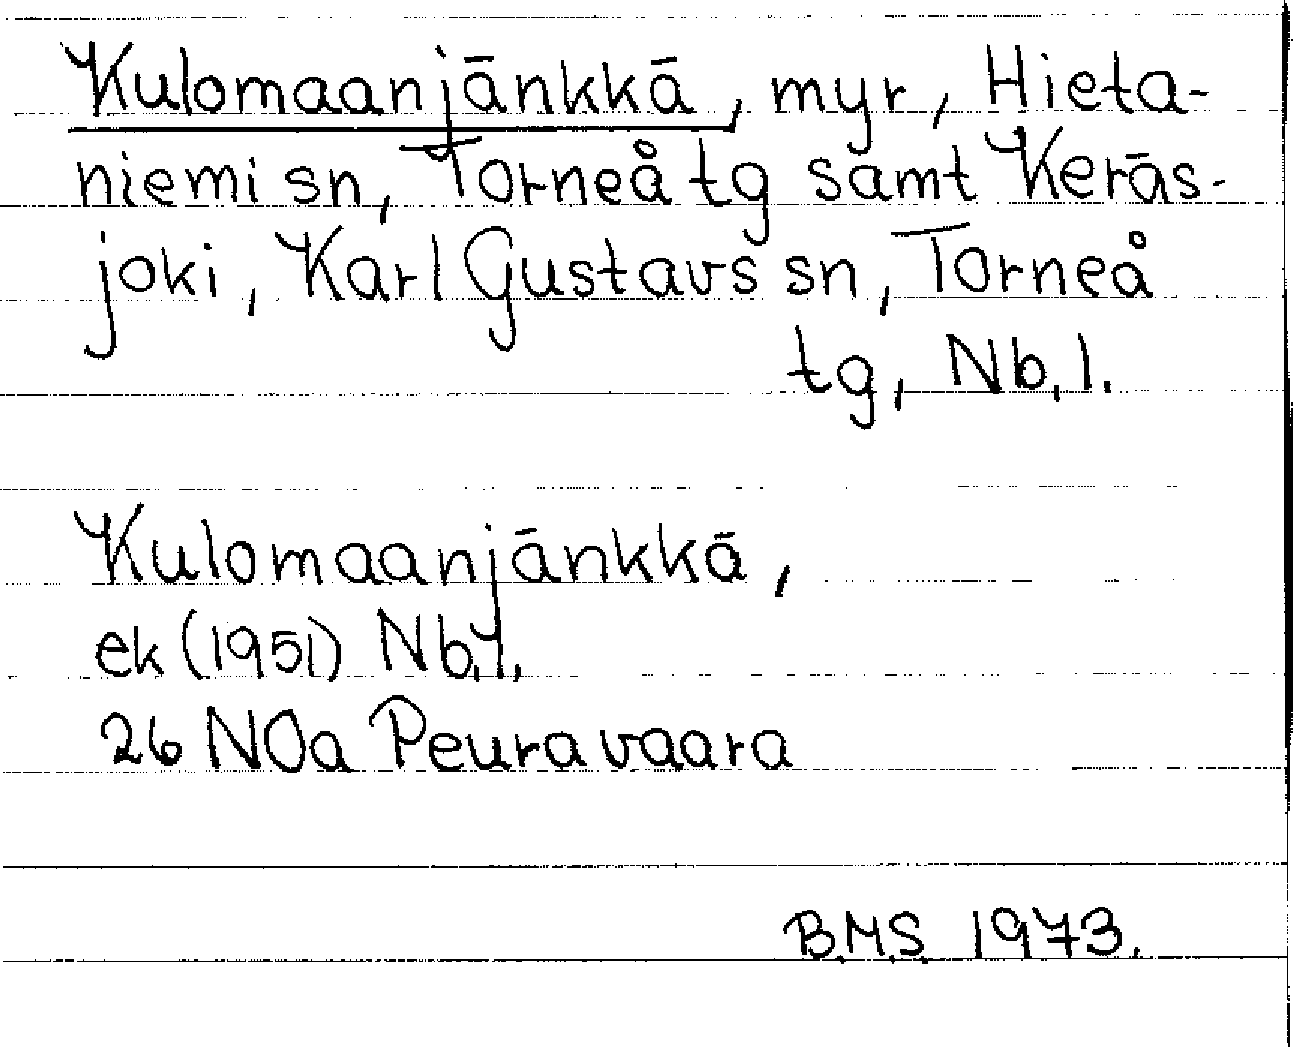 Kulomaanjänkkä, myr, Hieta-
niemi sn, Torneå tg samt Keräs-
joki, Karl Gustavs sn, Torneå
tg, Nb, l.
Kulomaanjänkkä,
ek (1951) Nb, l.
26 NOa Peuravaara
B.M.S. 1973.